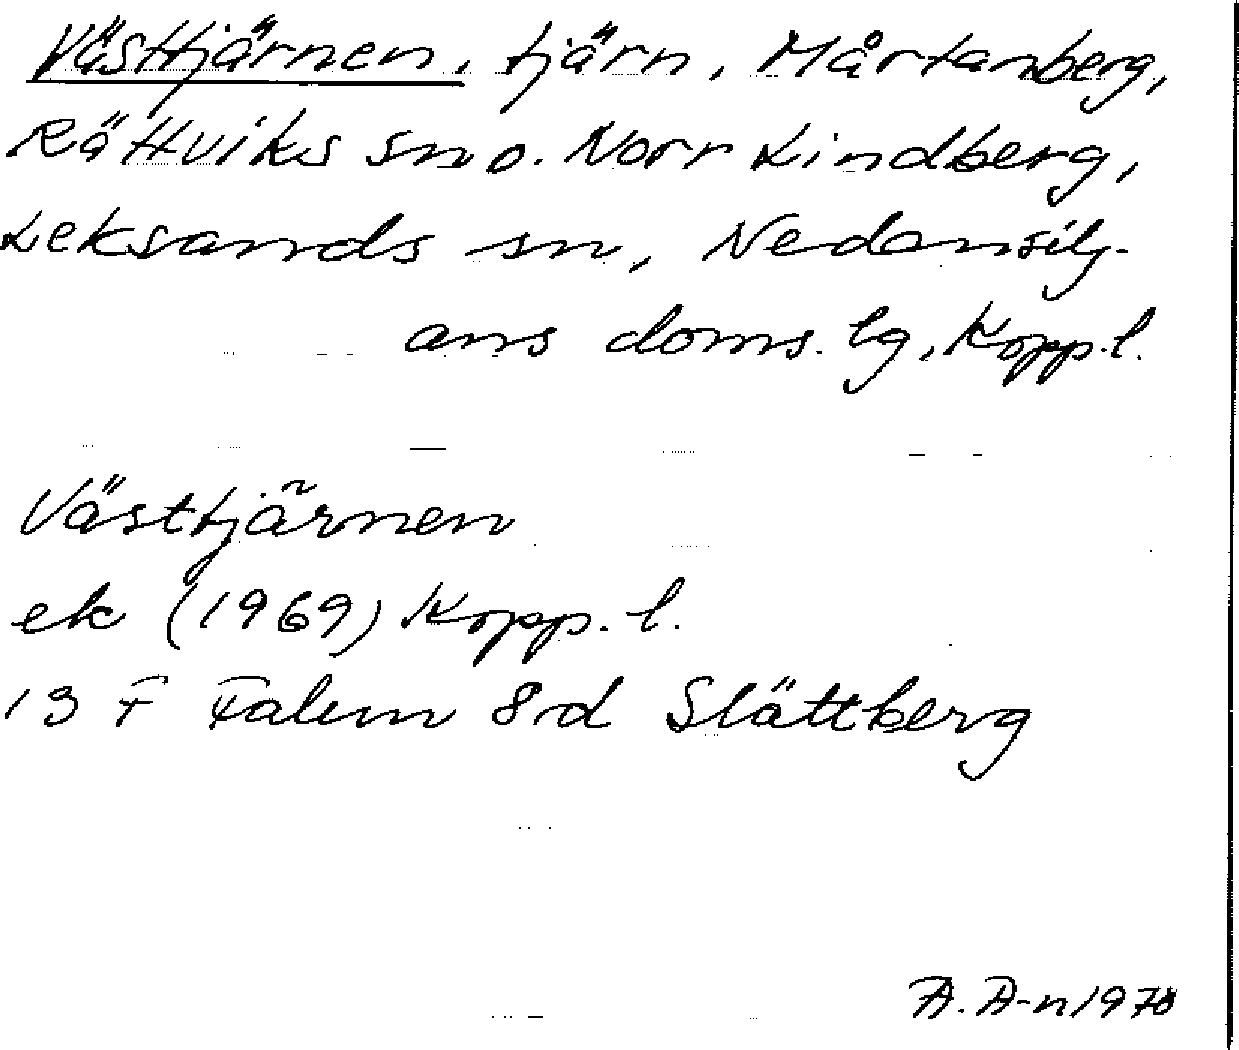 Västtjärnen, tjärn, Mårtanberg,
Rättviks sn o. Norr Lindberg,
Leksands sn, Nedansilj-
ans doms. lg, Kopp. l.
Västtjärnen
ek (1969) Kopp. l.
13 F Falun 8 d Slättberg
A. A-n 1978